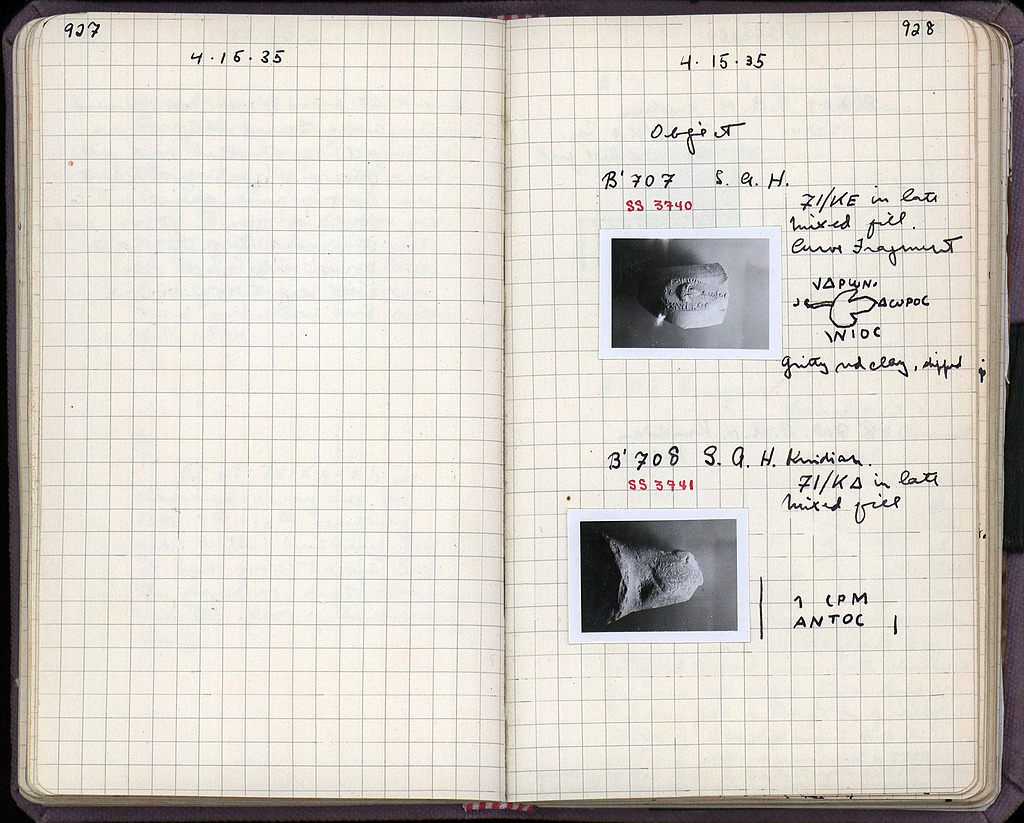 927
4·15·35
928
4·15·35
Object
B' 707 S. A. H.
SS 3740
71/KE in late
mixed fill.
Curve Fragment
ΔΡѠΝ.
ΔѠΡΟϹ
ΝΙΟϹ
Gritty red clay, slipped
B' 708 S. A. H. Knidian.
SS 3741
71/ΚΔ in late
mixed fill
ϹΡΜ
ΑΝΤΟϹ